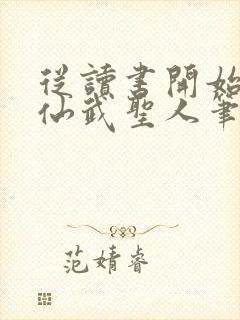 從讀書開始
仙武聖人筆
范婧睿